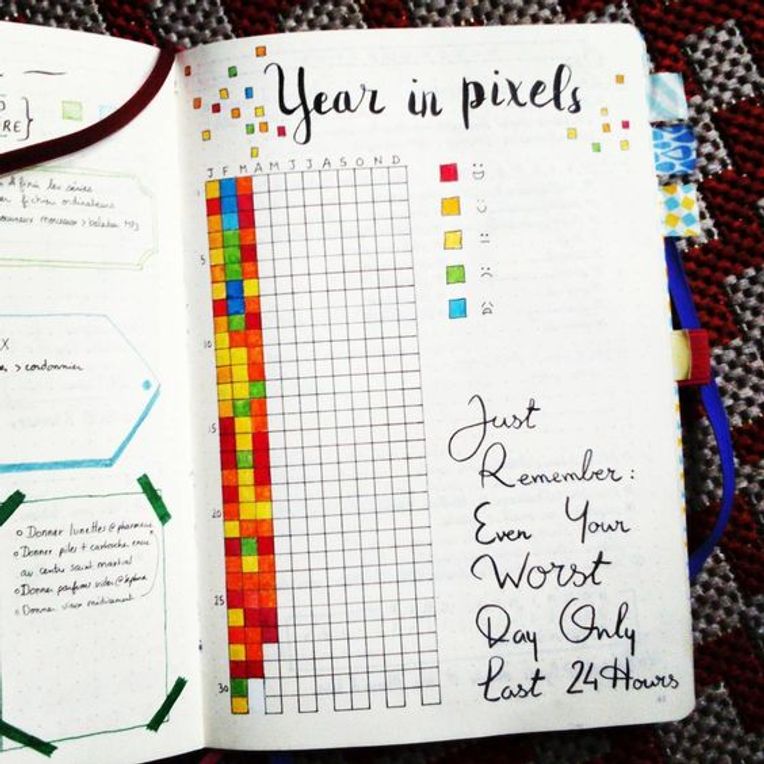 RE}
finir les séries
fichiers ordinateurs
morceaux > baladeur MP3
X
> cordonnier
o Donner lunettes @ pharmacie
o Donner piles + cartouche encre
au centre saint martial
o Donner parfums vides @
o Donner vieux médicament
Year in pixels
J F M A M J J A S O N D
1
5
10
15
20
25
30
Just
Remember:
Even Your
Worst
Day Only
Last 24 Hours